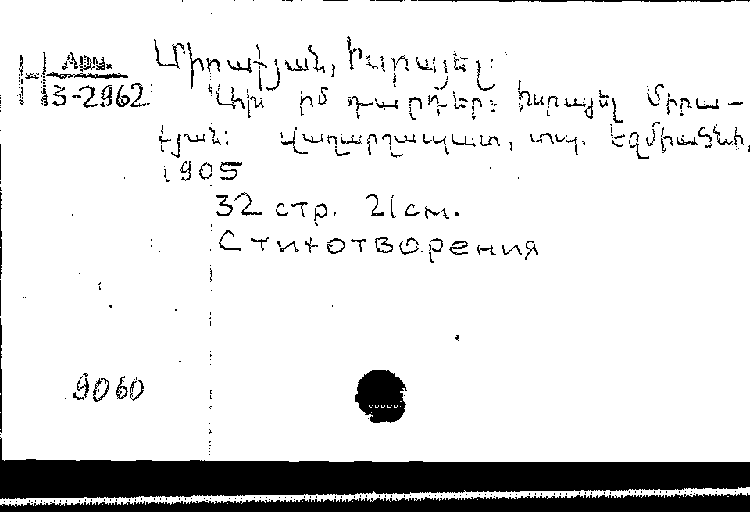 Арм.
Н
3-2962
Միրաքյան, Իսրայել:
Ախ իմ դարդեր: Իսրայել Միրա-
քյան: Վաղարշապատ, տպ. Էջմիածնի,
1905
32 стр. 21см.
Стихотворения
9060